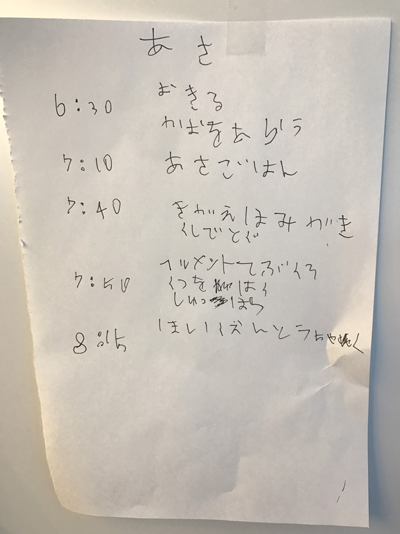 あさ
6:30 おきる
かおをあらう
7:10 あさごはん
7:40 きがえ はみがき
くしでとぐ
7:50 ヘルメント てぶくろ
くつをはく
しゅっぱつ
8:15 ほいくえんとうちゃく